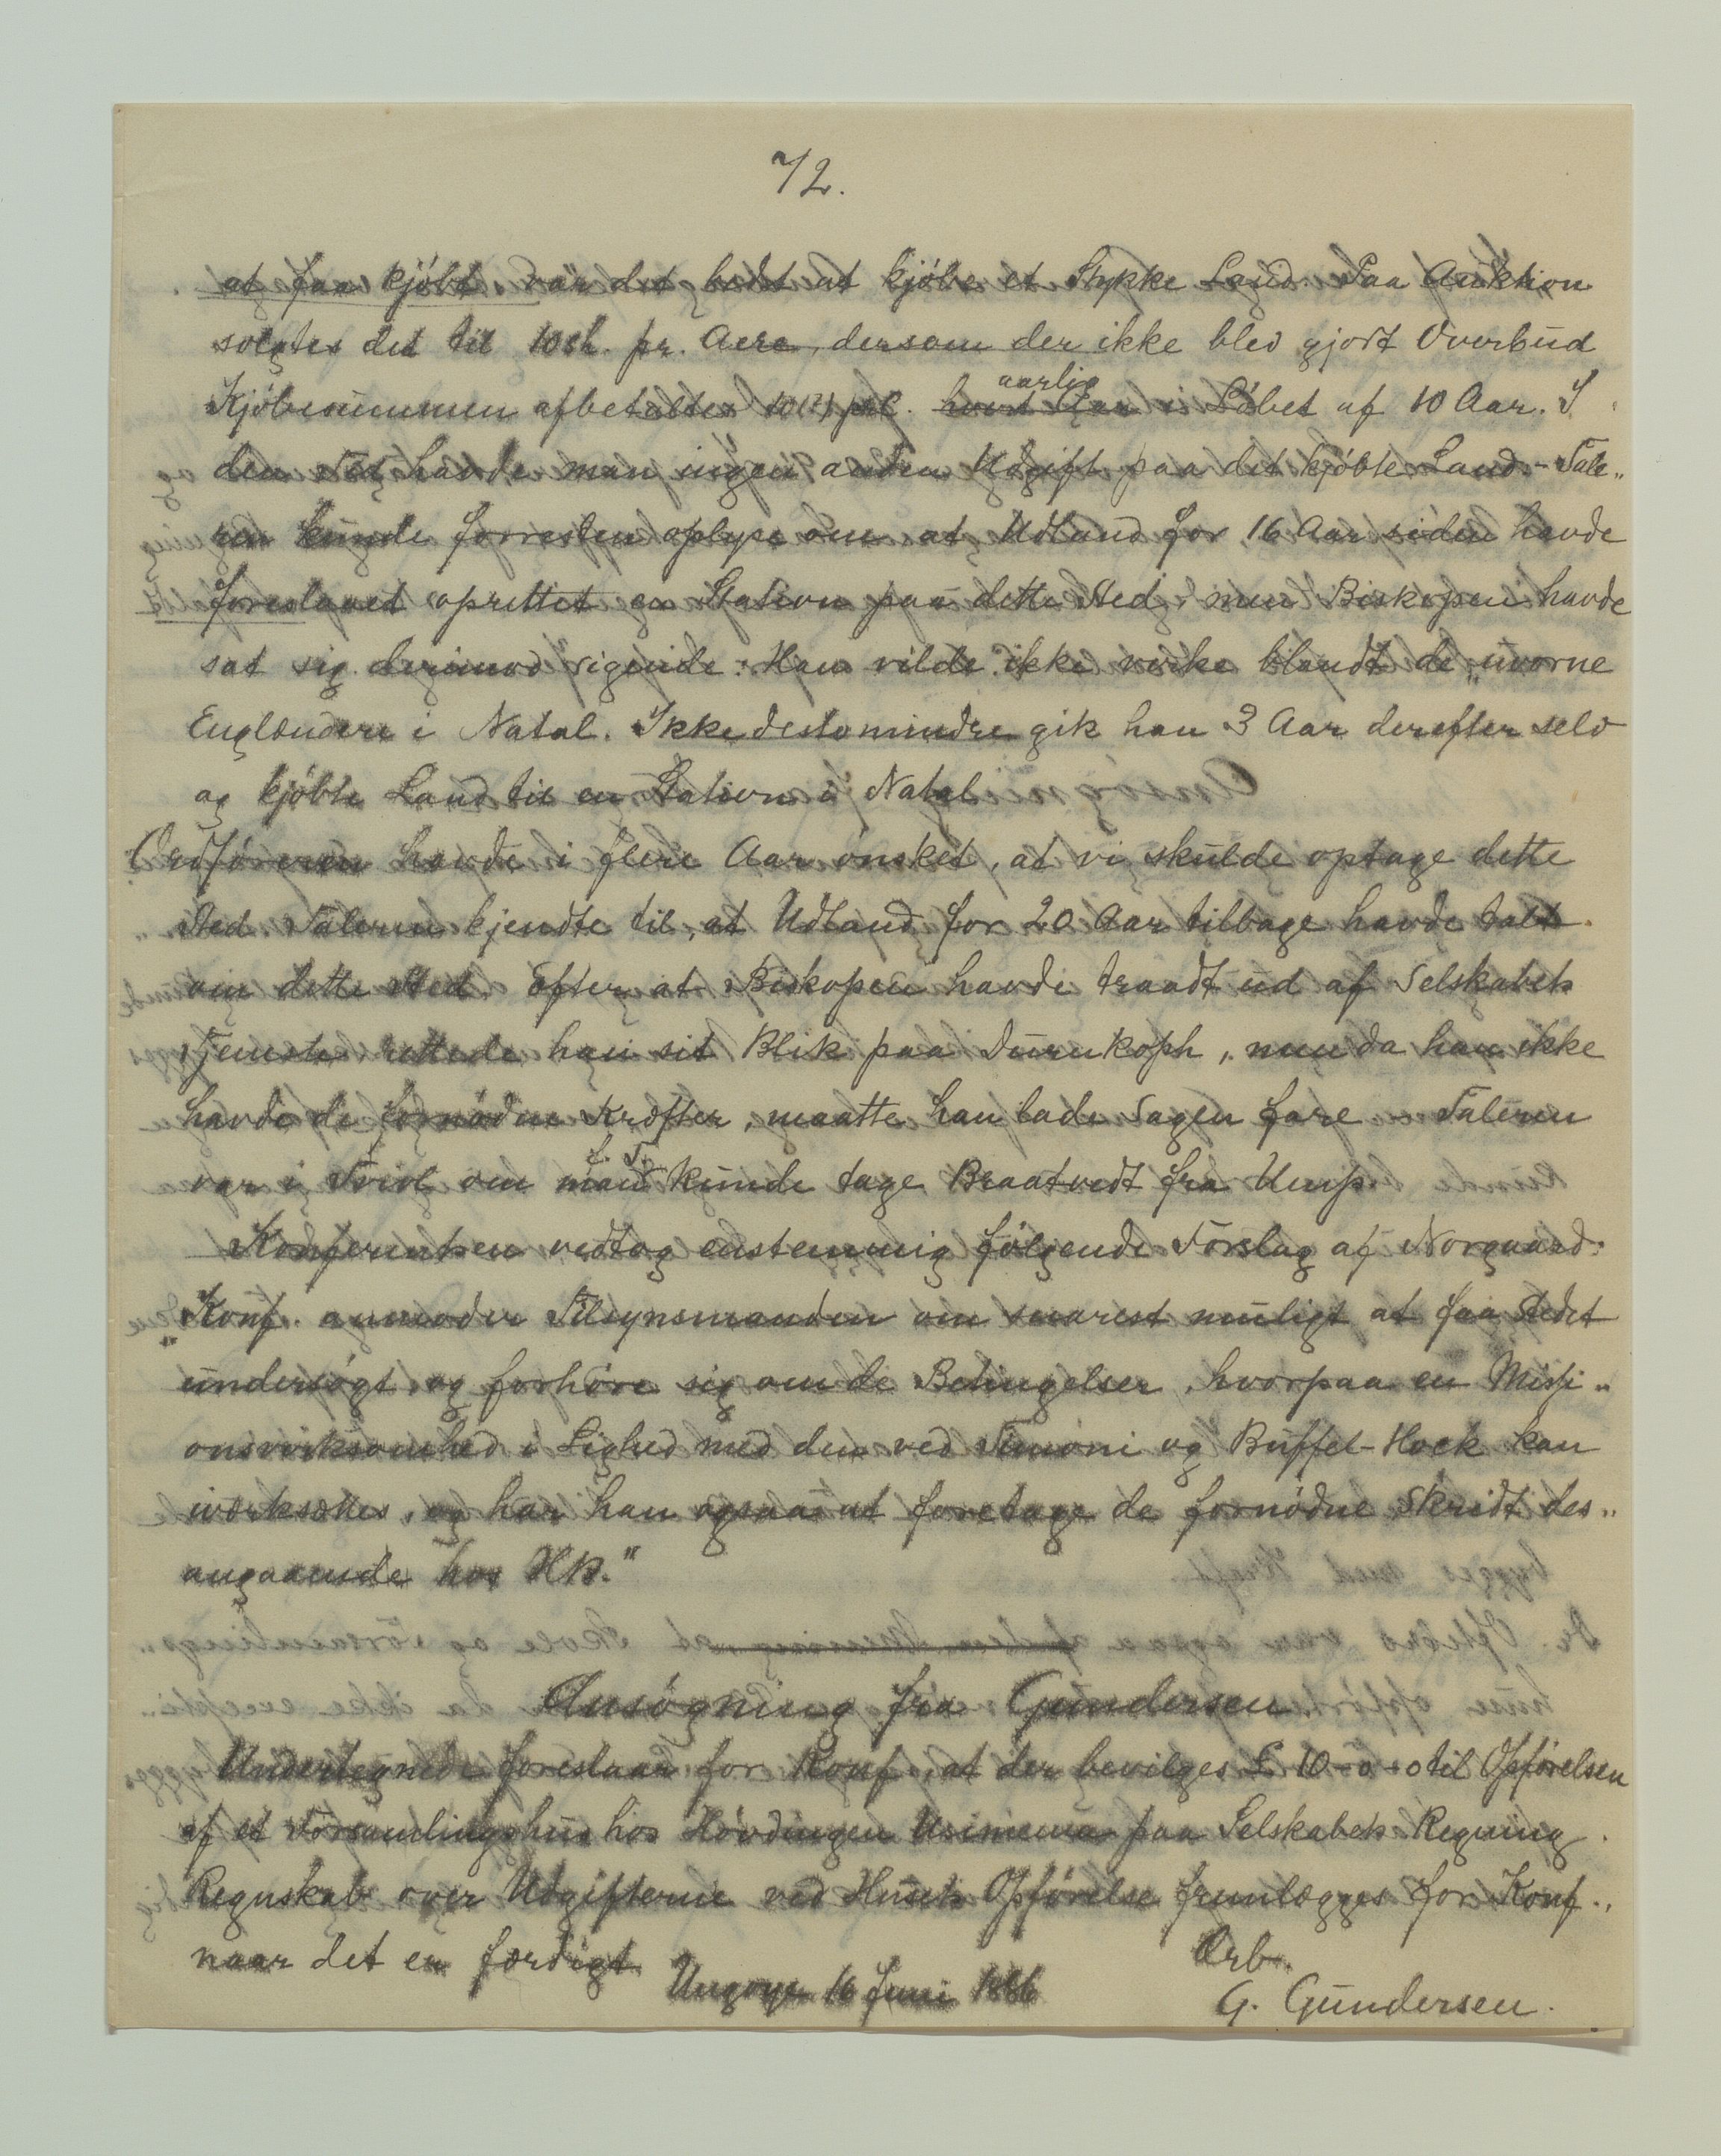 72.
at faa kjøbt, var det bedst at kjøbe et Stykke Land. Paa Auktion
solgtes det til 10 sh. pr. Acre, dersom der ikke blev gjort Overbud
Kjøbesummen afbetaltes 10(?) pCt. hvert Aar aarlig i Løbet af 10 Aar. I
den Tid havde man ingen anden Udgift paa det kjøbte Land. - Tale„
ren kunde forresten oplyse om at Udland for 16 Aar siden havde
foreslaaet oprettet en Station paa dette Sted, men Biskopen havde
sat sig derimod sigende: Han vilde ikke virke blandt de „uvorne
Englændere i Natal. Ikkedestomindre gik han 3 Aar derefter selv
og kjøbte Land til en Station i Natal.
Ordføreren havde i flere Aar ønsket, at vi skulde optage dette
Sted. Taleren kjendte til, at Udland for 20 Aar tilbage havde talt
om dette Sted. Efter at Biskopen havde traadt ud af Selskabets
Tjeneste rettede han sit Blik paa Durnkoph, men da han ikke
havde de fornødne Kræfter, maatte han lade Sagen fare. Taleren
var i Tvivl om man f. T. kunde tage Braatvedt fra Ump.
Konferentsen vedtog enstemmig følgende Forslag af Norgaard:
„Konf. anmoder Tilsynsmanden om snarest muligt at faa Stedet
undersøgt og forhøre sig om de Betingelser, hvorpaa en Missi„
onsvirksomhed i Lighed med den ved Timoni og Buffel-Hoek kan
iværksættes, og har han ogsaa at foretage de fornødne Skridt des„
angaaende hos HB."
Ansøgning fra Gundersen
Undertegnede foreslaar for Konf. at der bevilges £ 10-0-0 til Opførelsen
af et Forsamlingshus hos Høvdingen Usimewa paa Selskabets Regning.
Regnskab over Udgifterne ved Husets Opførelse fremlægges for Konf.,
naar det er færdigt.
Ungoye 16 Juni 1886
Ærb.
G. Gundersen.